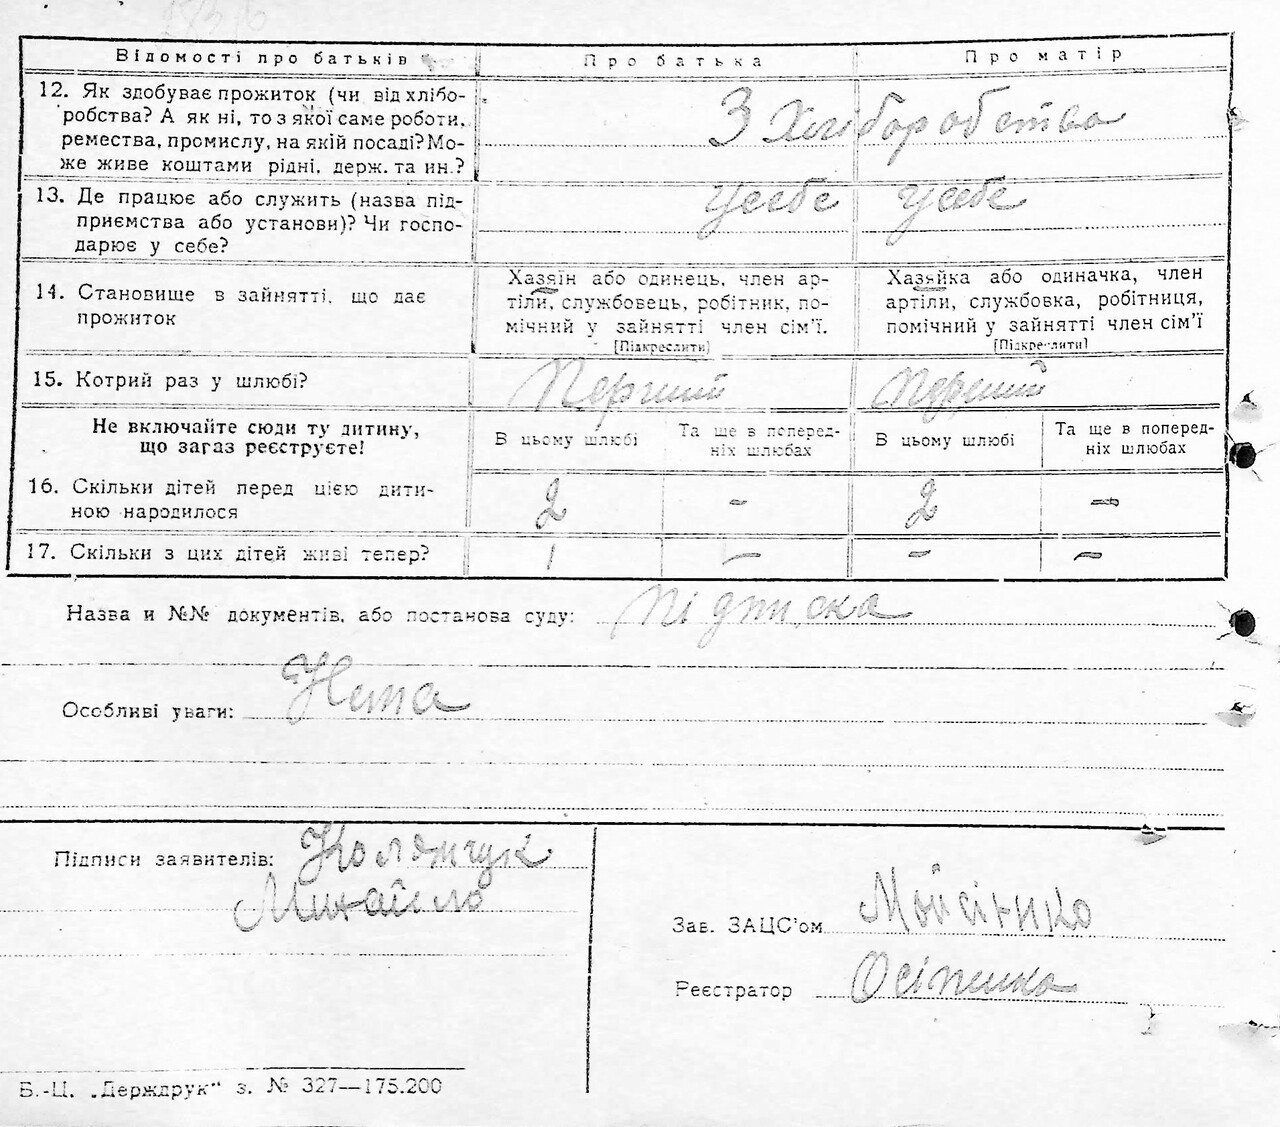 Відомості про батьків Про батька Про матір
12. Як здобуває прожиток (чи від хлібо-
робства? А як ні, то з якої саме роботи,
ремества, промислу, на якій посаді? Мо-
же живе коштами рідні, держ. та ин.?
З Хлібороботва
13. Де працює або служить (назва під-
приємства або установи)? Чи госпо-
дарює у себе?
У себе У себе
14. Становище в зайнятті, що дає
прожиток
Хазяїн або одинець, член ар-
тіли, службовець, робітник, по-
мічний у зайнятті член сім'ї.
[Підкреслити]
Хазяйка або одиначка, член
артіли, службовка, робітниця,
помічний у зайнятті член сім'ї
[Підкреслити]
15. Котрий раз у шлюбі? Перший Перший
Не включайте сюди ту дитину,
що загаз реєструєте!
В цьому шлюбі
Та ще в поперед-
ніх шлюбах
В цьому шлюбі
Та ще в поперед-
ніх шлюбах
16. Скільки дітей перед цією дити-
ною народилося
2 - 2 -
17. Скільки з цих дітей живі тепер? 1 - - -
Назва и №№ документів, або постанова суду: Підписка
Особливі уваги: Нема
Підписи заявителів:
Михайло
Зав. ЗАЦС'ом Мойсієнко
Реєстратор Осіпенко
Б.-Ц. „Держдрук" з. № 327—175.200